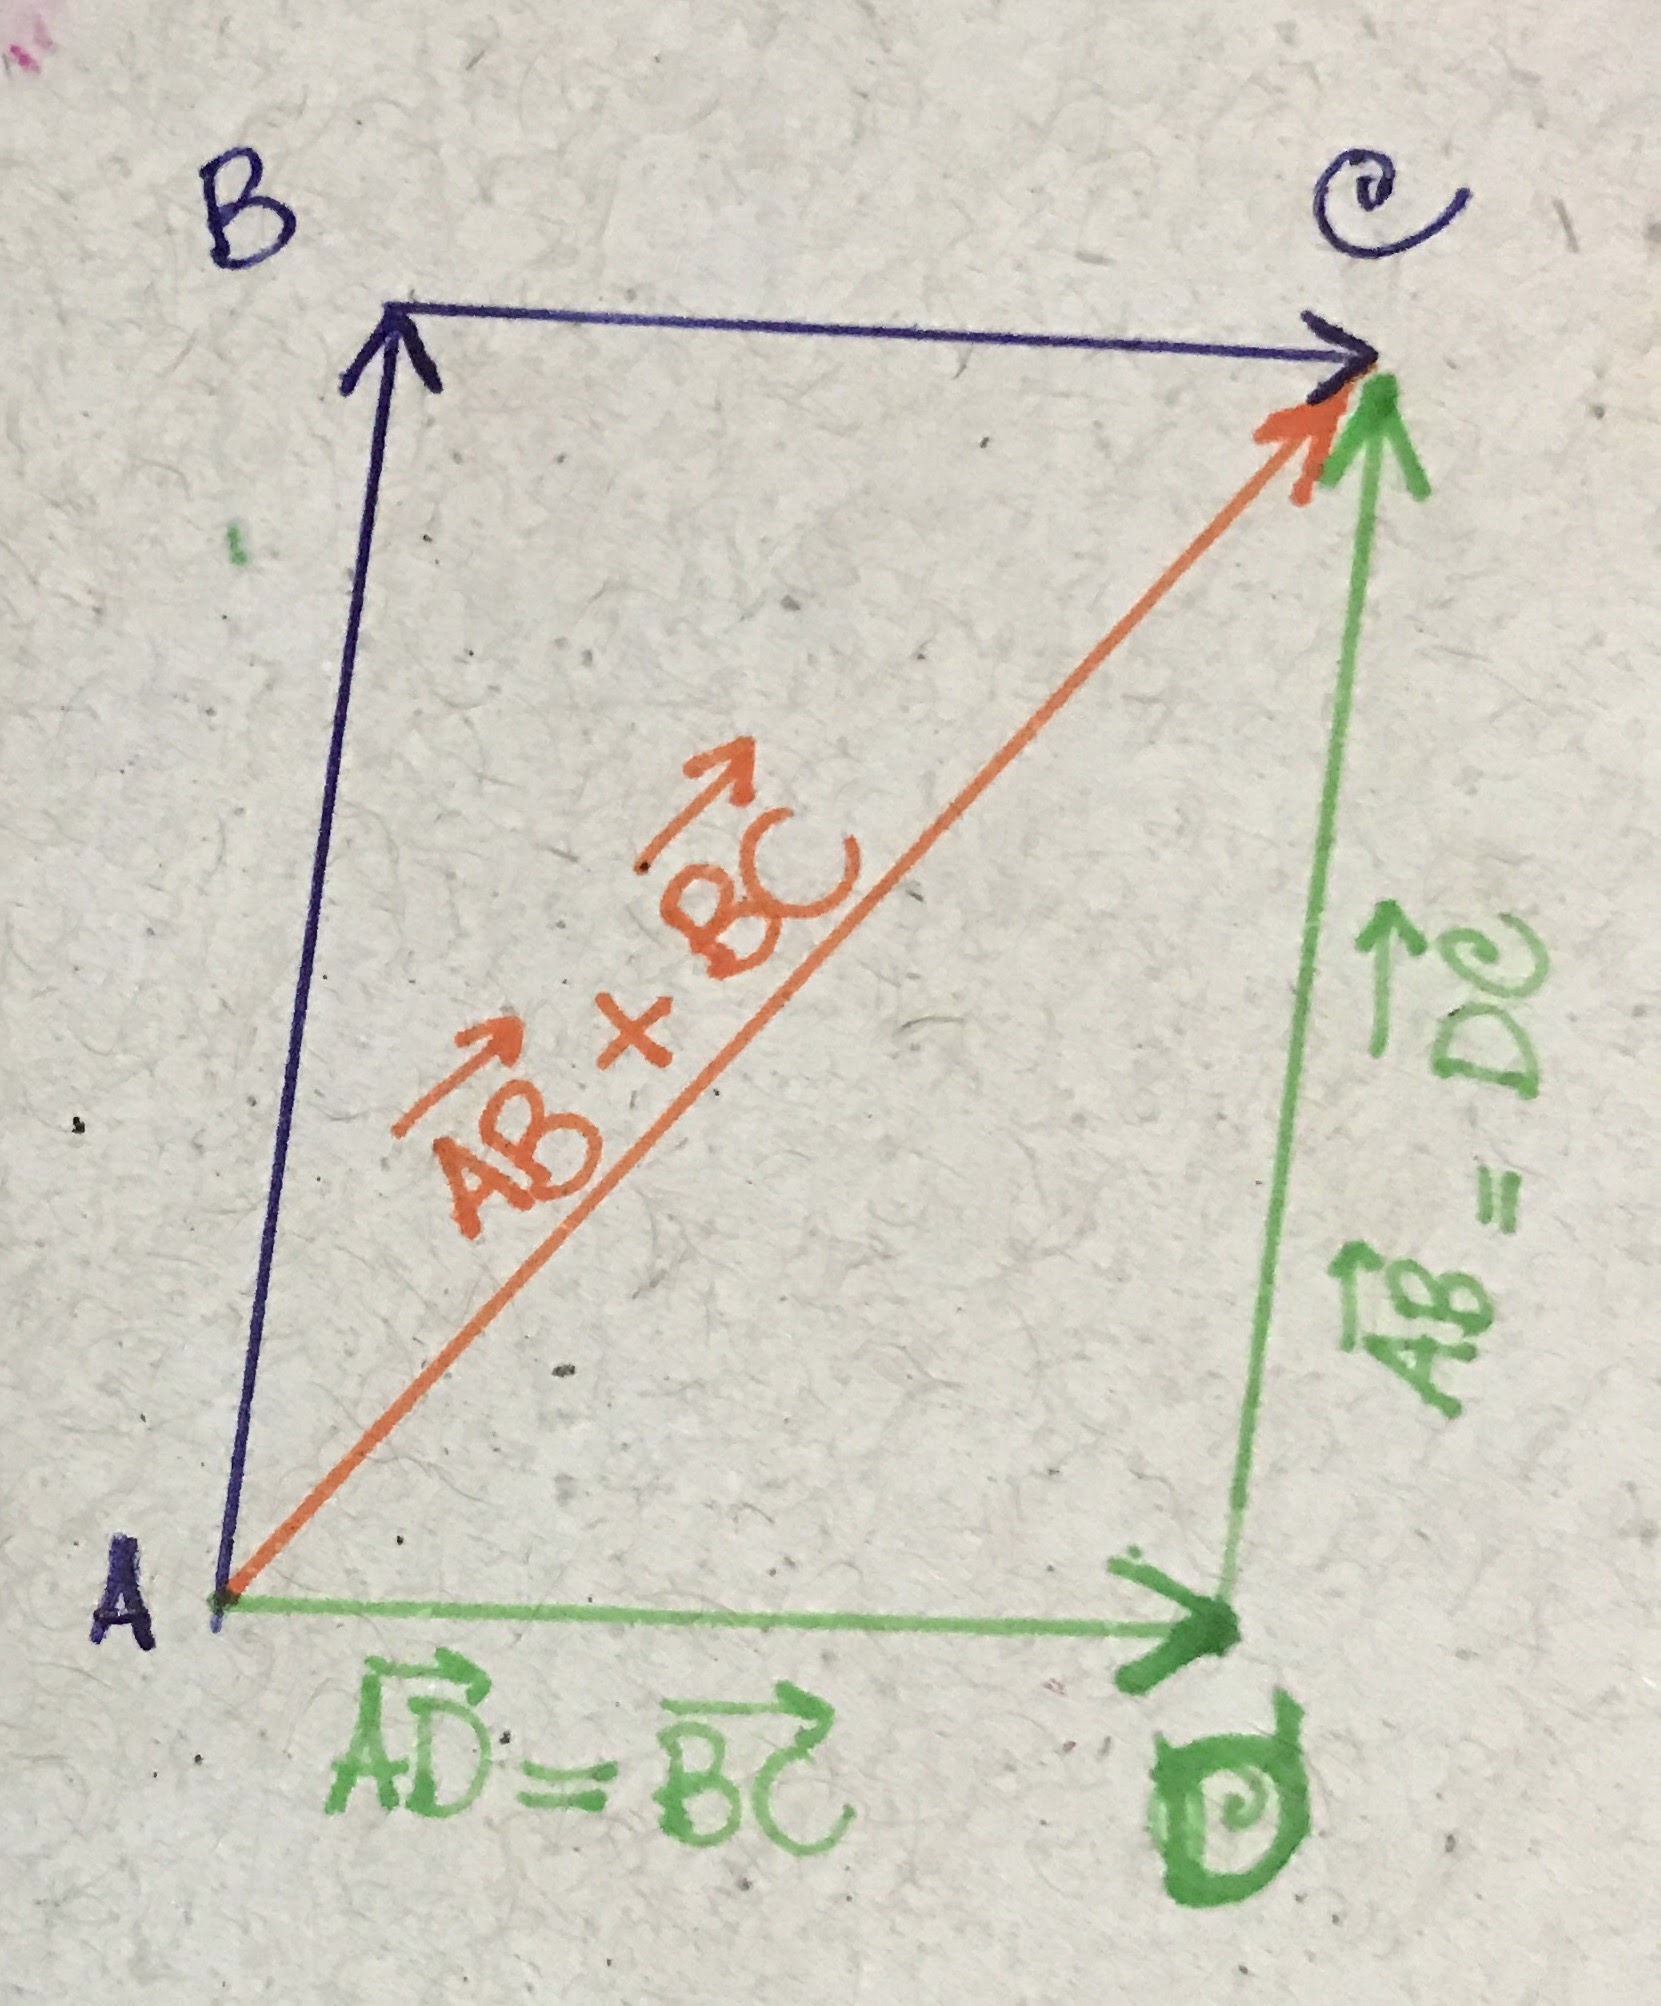 B
C
AB × BC
AB = DC
A
AD = BC
D